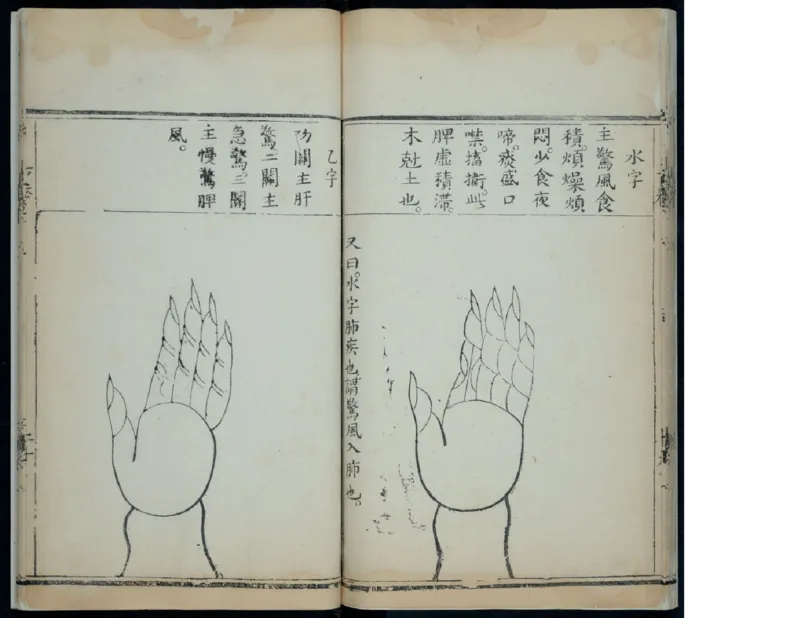 水字
主驚風食
積。煩燥煩
悶。少食夜
啼。痰盛口
噤。搐搦。此
脾虛積滯。
木尅土也。
又曰。水字肺疾也。謂驚風入肺也。
乙字
關主肝
驚二關主
急驚。三關
主慢驚脾
風。